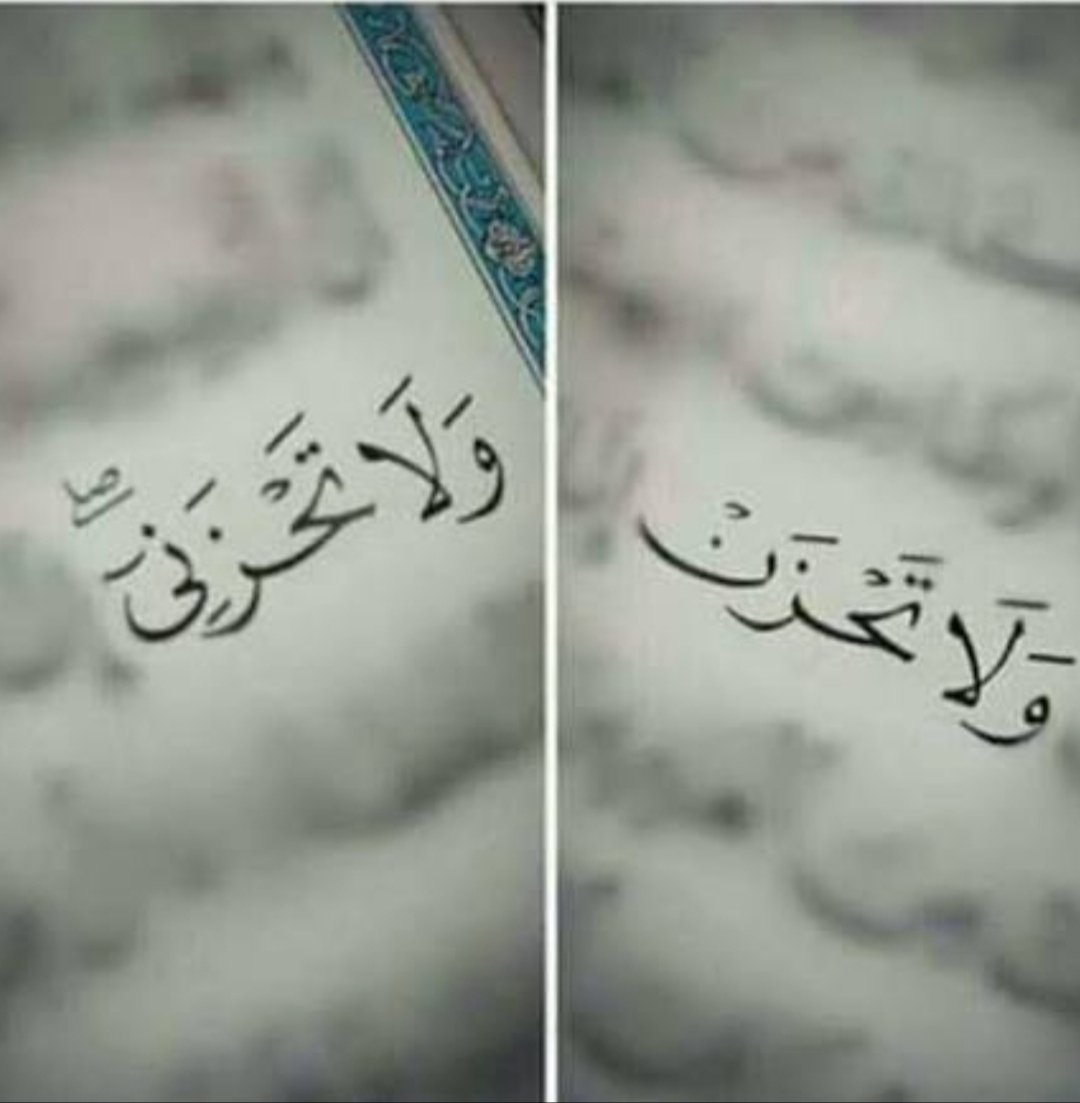 وَلَا تَحْزَنْ
وَلَا تَحْزَنِىٓۖ